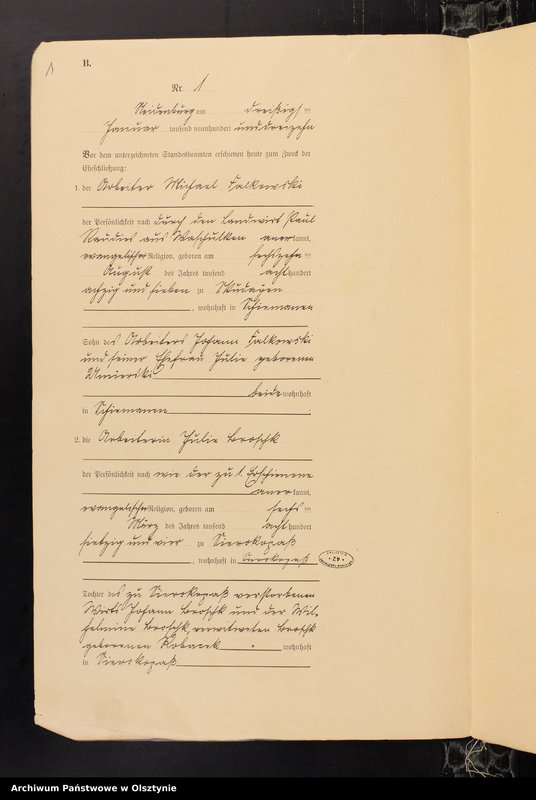 B.
1
Nr. 1
Neidenburg am dreißigsten
Januar tausend neunhundert und dreizehn
Vor dem unterzeichneten Standesbeamten erschienen heute zum Zweck der
Eheschließung:
1. der Arbeiter Michael Falkowski
der Persönlichkeit nach durch den Landwirt Paul
Naudies aus Waschulken anerkannt,
evangelischer Religion, geboren am sechszehnten
August des Jahres tausend achthundert
achtzig und sieben zu Skudayen
, wohnhaft in Schiemanen
Sohn des Arbeiters Johann Falkowski
und seiner Ehefrau Julie geborenen
beide wohnhaft
in Schiemanen.
2. die Arbeiterin Julie Broschk
der Persönlichkeit nach wie der zu 1. Erschienene
anerkannt,
evangelischer Religion, geboren am sechsten
März des Jahres tausend achthundert
siebzig und vier zu Sierokopaß
, wohnhaft in Sierokopaß
42
Tochter des zu Sierokopaß verstorbenen
Wirts Johann Broschk und der Wil-
helmine Broschk, verwitweten Broschk
geborenen Kobacek wohnhaft
in Sierokopaß
Archiwum Państwowe w Olsztynie